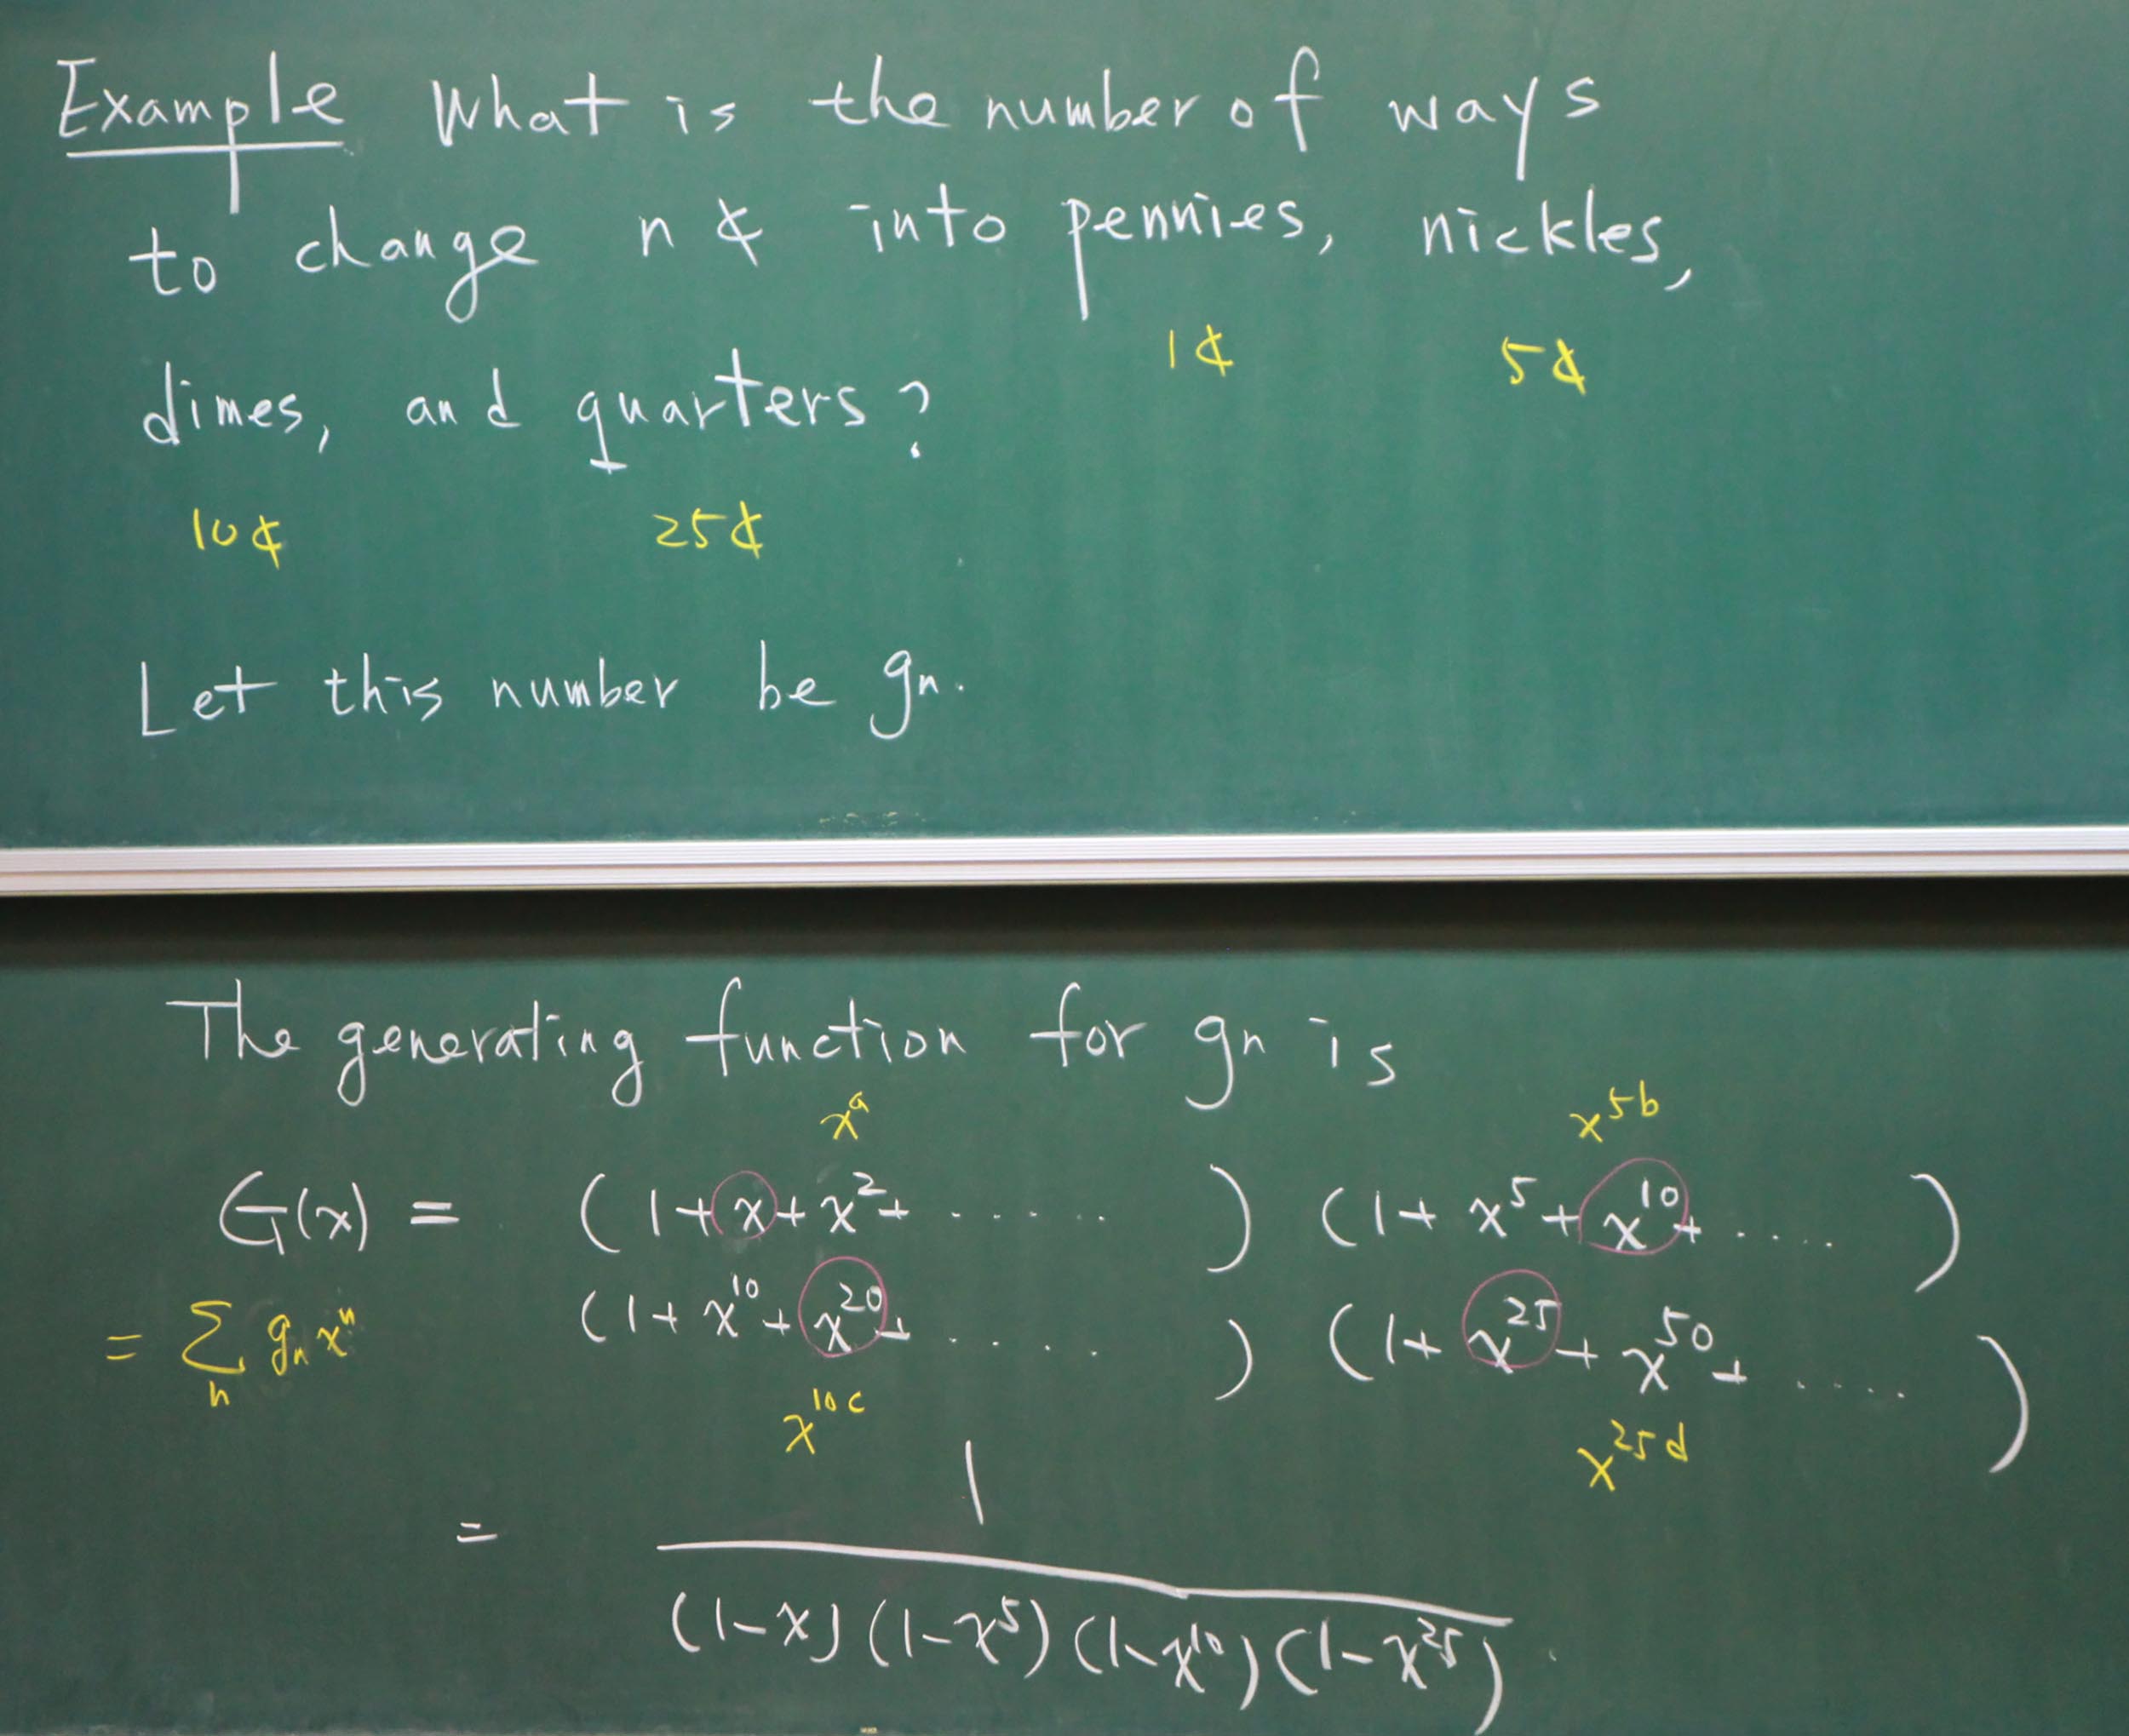 Example What is the number of ways
to change n ¢ into pennies, nickles,
1¢ 5¢
dimes, and quarters?
10¢ 25¢
Let this number be gₙ.
The generating function for gₙ is
xᵃ x⁵ᵇ
G(x) = (1+x+x²+ ......) (1+x⁵+x¹⁰+ .....)
= Σₙ gₙxⁿ (1+x¹⁰+x²⁰+ .....) (1+x²⁵+x⁵⁰+ .....)
x¹⁰ᶜ x²⁵ᵈ
= 1
(1-x)(1-x⁵)(1-x¹⁰)(1-x²⁵).